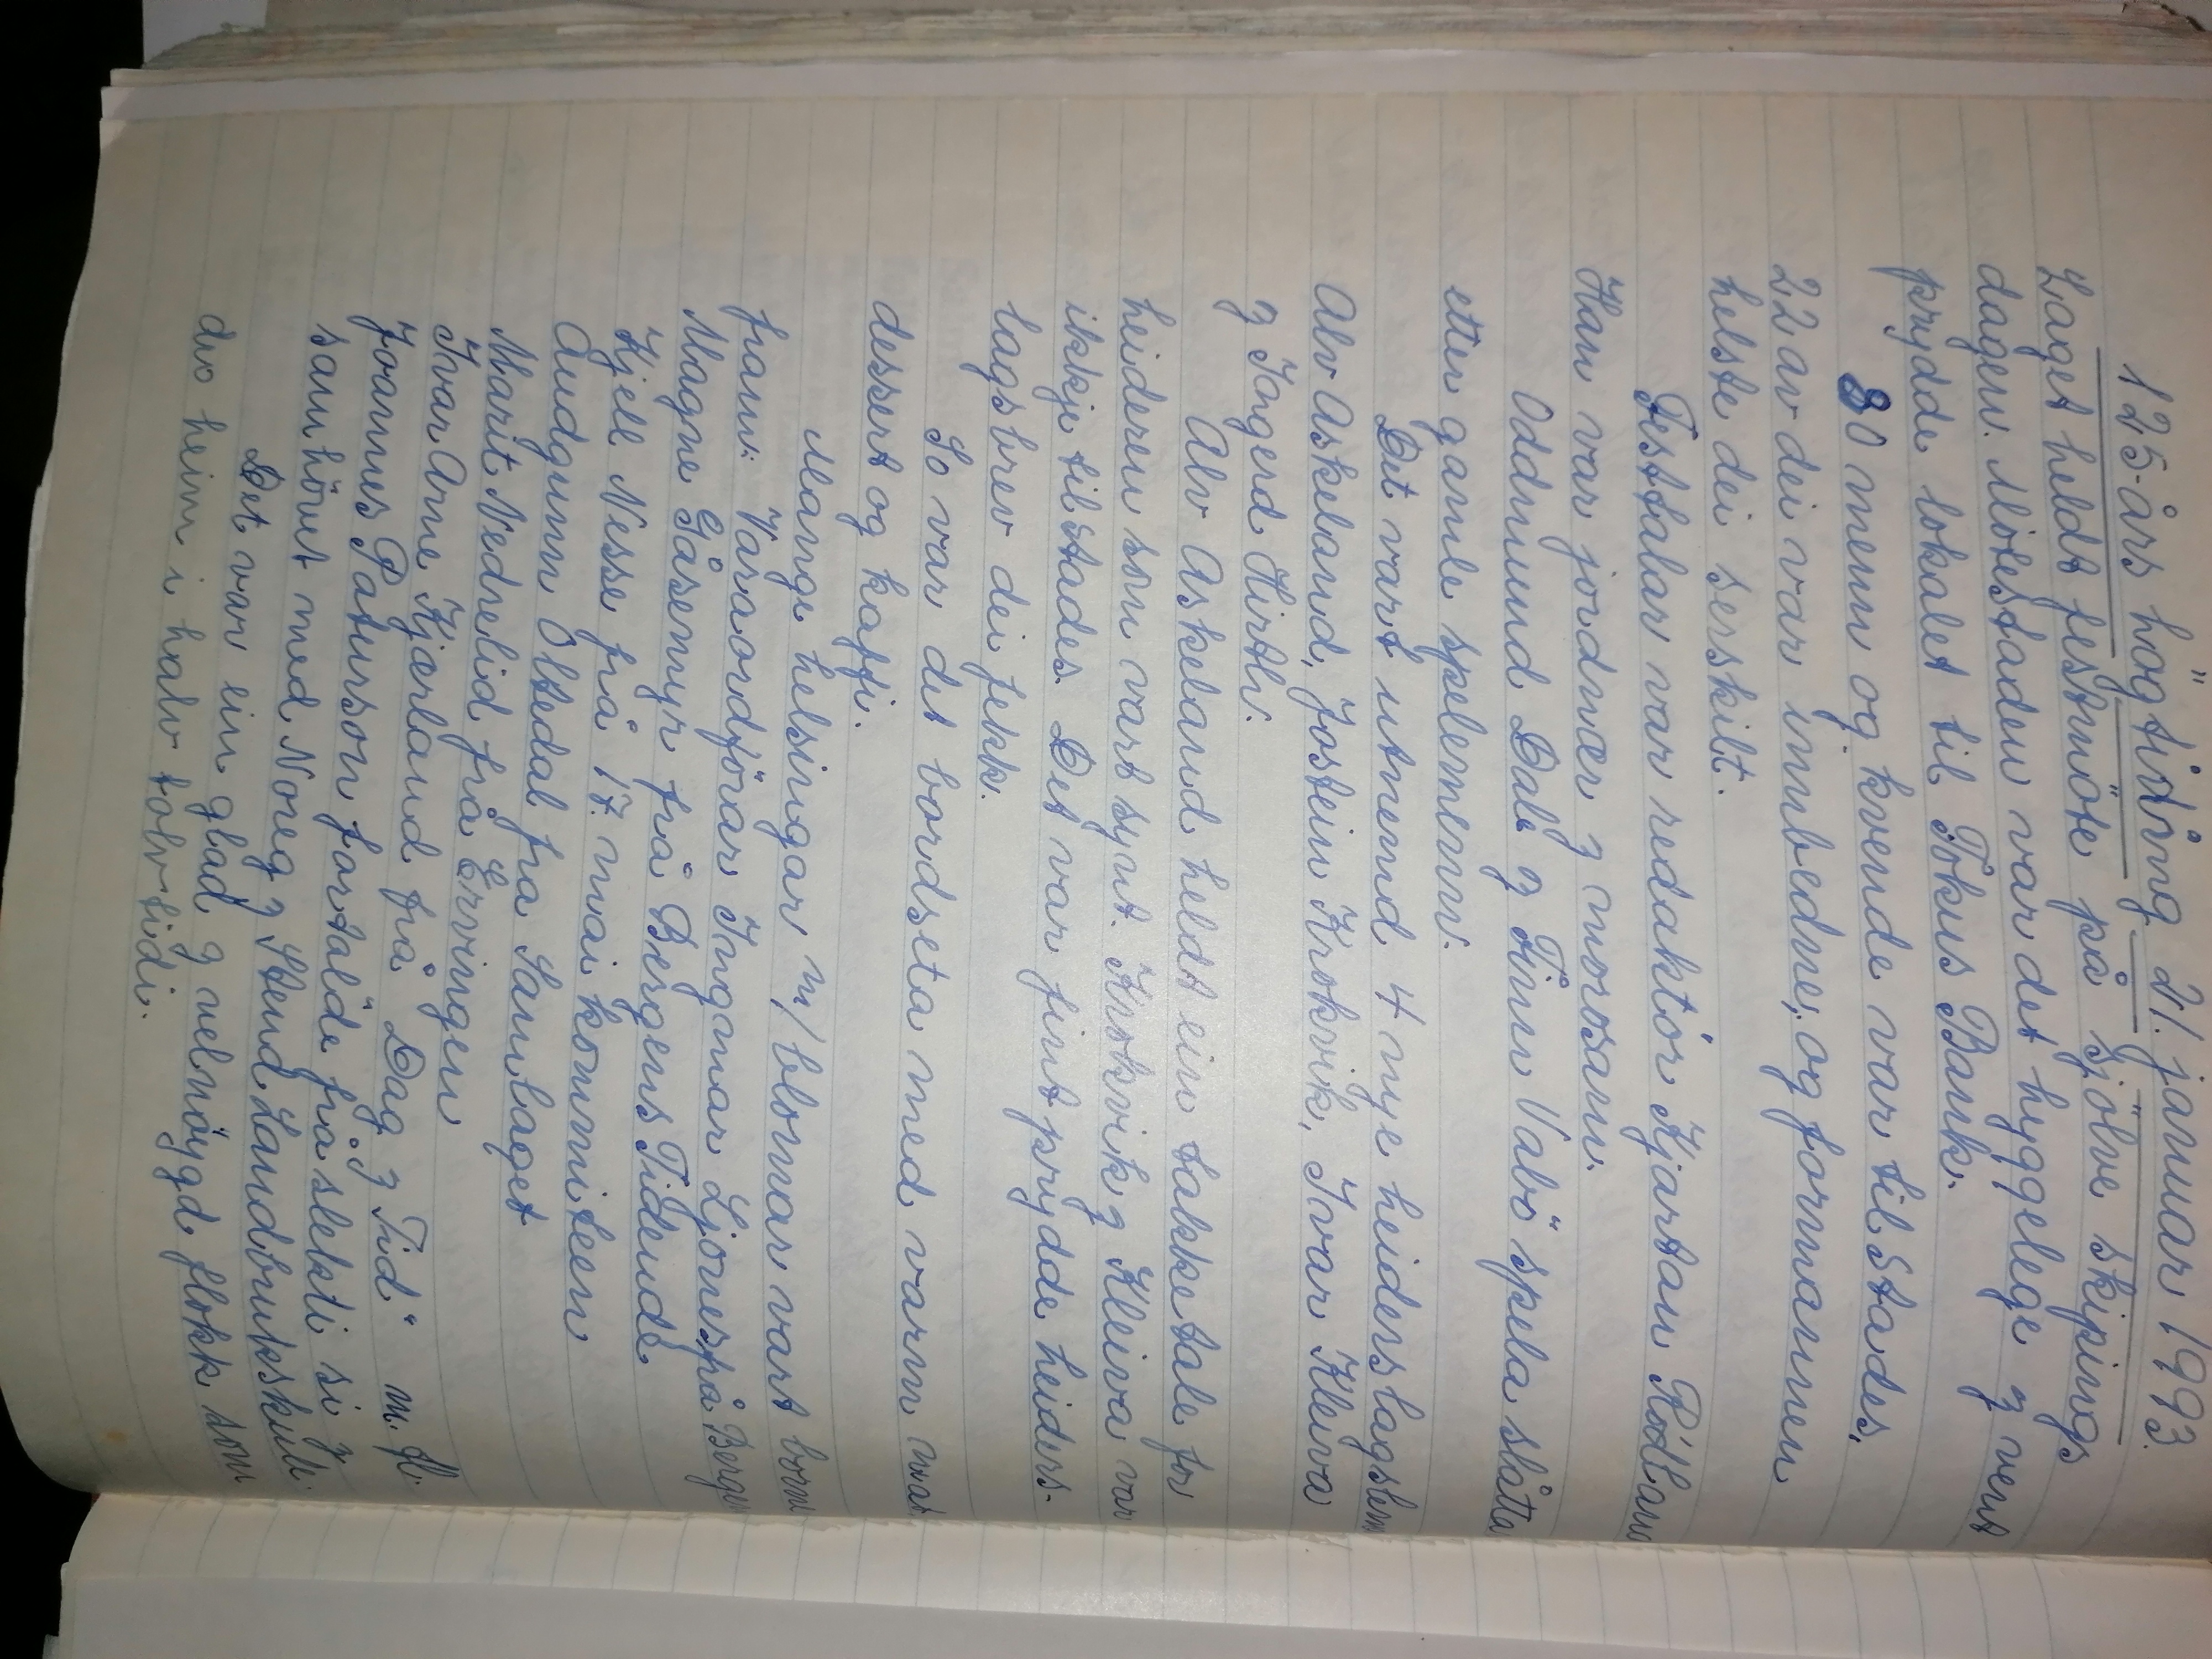 125-års högtiding 21. januar 1993.
Laget heldt festmöte på sjölve skipings
dagen. Mötestaden var det hyggelege og vent
prydde lokalet til Fokus Bank.
80 menn og kvende var tilstades.
22 av dei var innbedne, og formannen
helste dei serskilt.
Festtalar var redaktör Kjartan Rödland
Han var jordnær og morosam.
Oddmund Dale og Finn Vabö spela slåtta
etter gamle spelemenn.
Det vart utnemd 4 nye heiderslagslem
Alv Askeland, Jostein Krokvik, Ivar Kleiva
og Ingerd Hirth.
Alv Askeland heldt ein takketale for
heideren som vart synt. Krokvik og Kleiva var
ikkje tilstades. Det var fint prydde heiders-
lagsbrev dei fekk.
So var det bordseta med varm mat
dessert og kaffi.
Mange helsingar m/blomar vart borne
fram: Varaordförar Ingmar Ljones på Bergen
Magne Gåsemyr frå Bergens Tidende
Kjell Nesse frå 17. mai komniteen
Gudgunn Oltedal fra Samlaget
Marit Nedrelid frå Ervingen
Ivar Arne Kjærland frå Dag og Tid" m. fl.
Joannes Patursson fortalde frå slekti si og
samhövet med Noreg og Stend Landbrukskule.
Det var ein glad og velnöygd flokk som
dro heim i halv tolvtidi.